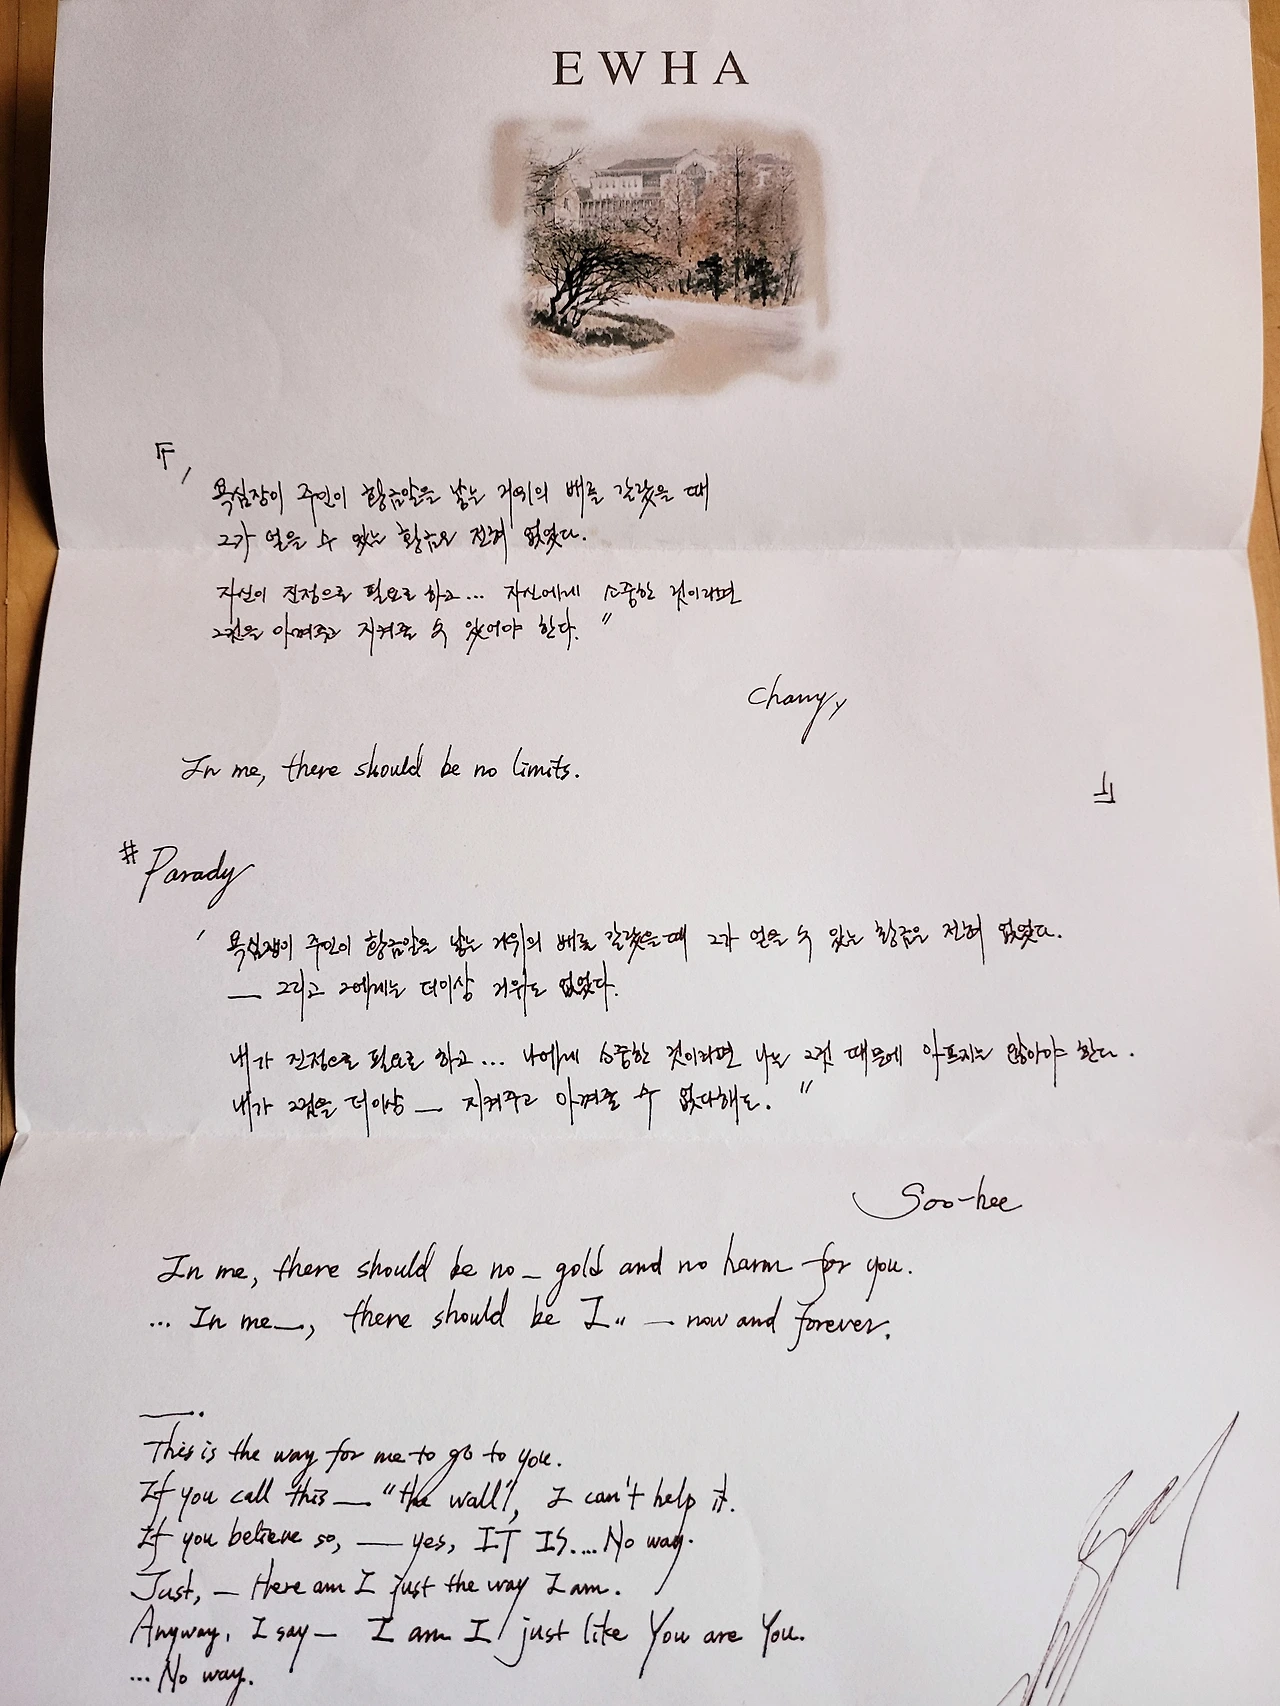 EWHA
『
' 욕심장이 주인이 황금알을 낳는 거위의 배를 갈랐을 때
그가 얻을 수 있는 황금은 전혀 없었다.
자신이 진정으로 필요로 하고... 자신에게 소중한 것이라면
그것을 아껴주고 지켜줄 수 있어야 한다. "
In me, there should be no limits.
』
# Parady
' 욕심쟁이 주인이 황금알을 낳는 거위의 배를 갈랐을 때 그가 얻을 수 있는 황금은 전혀 없었다.
— 그리고 그에게는 더이상 거위도 없었다.
내가 진정으로 필요로 하고... 나에게 소중한 것이라면 나는 그것 때문에 아프지는 않아야 한다.
내가 그것을 더이상 — 지켜주고 아껴줄 수 없다해도. "
Soo-hee
In me, there should be no _ gold and no harm for you.
... In me —, there should be I.. — now and forever.
—.
This is the way for me to go to you.
If you call this — "the wall", I can't help it.
If you believe so, — yes, IT IS.... No way.
Just, — Here am I just the way I am.
Anyway, I say — I am I just like You are You.
... No way.